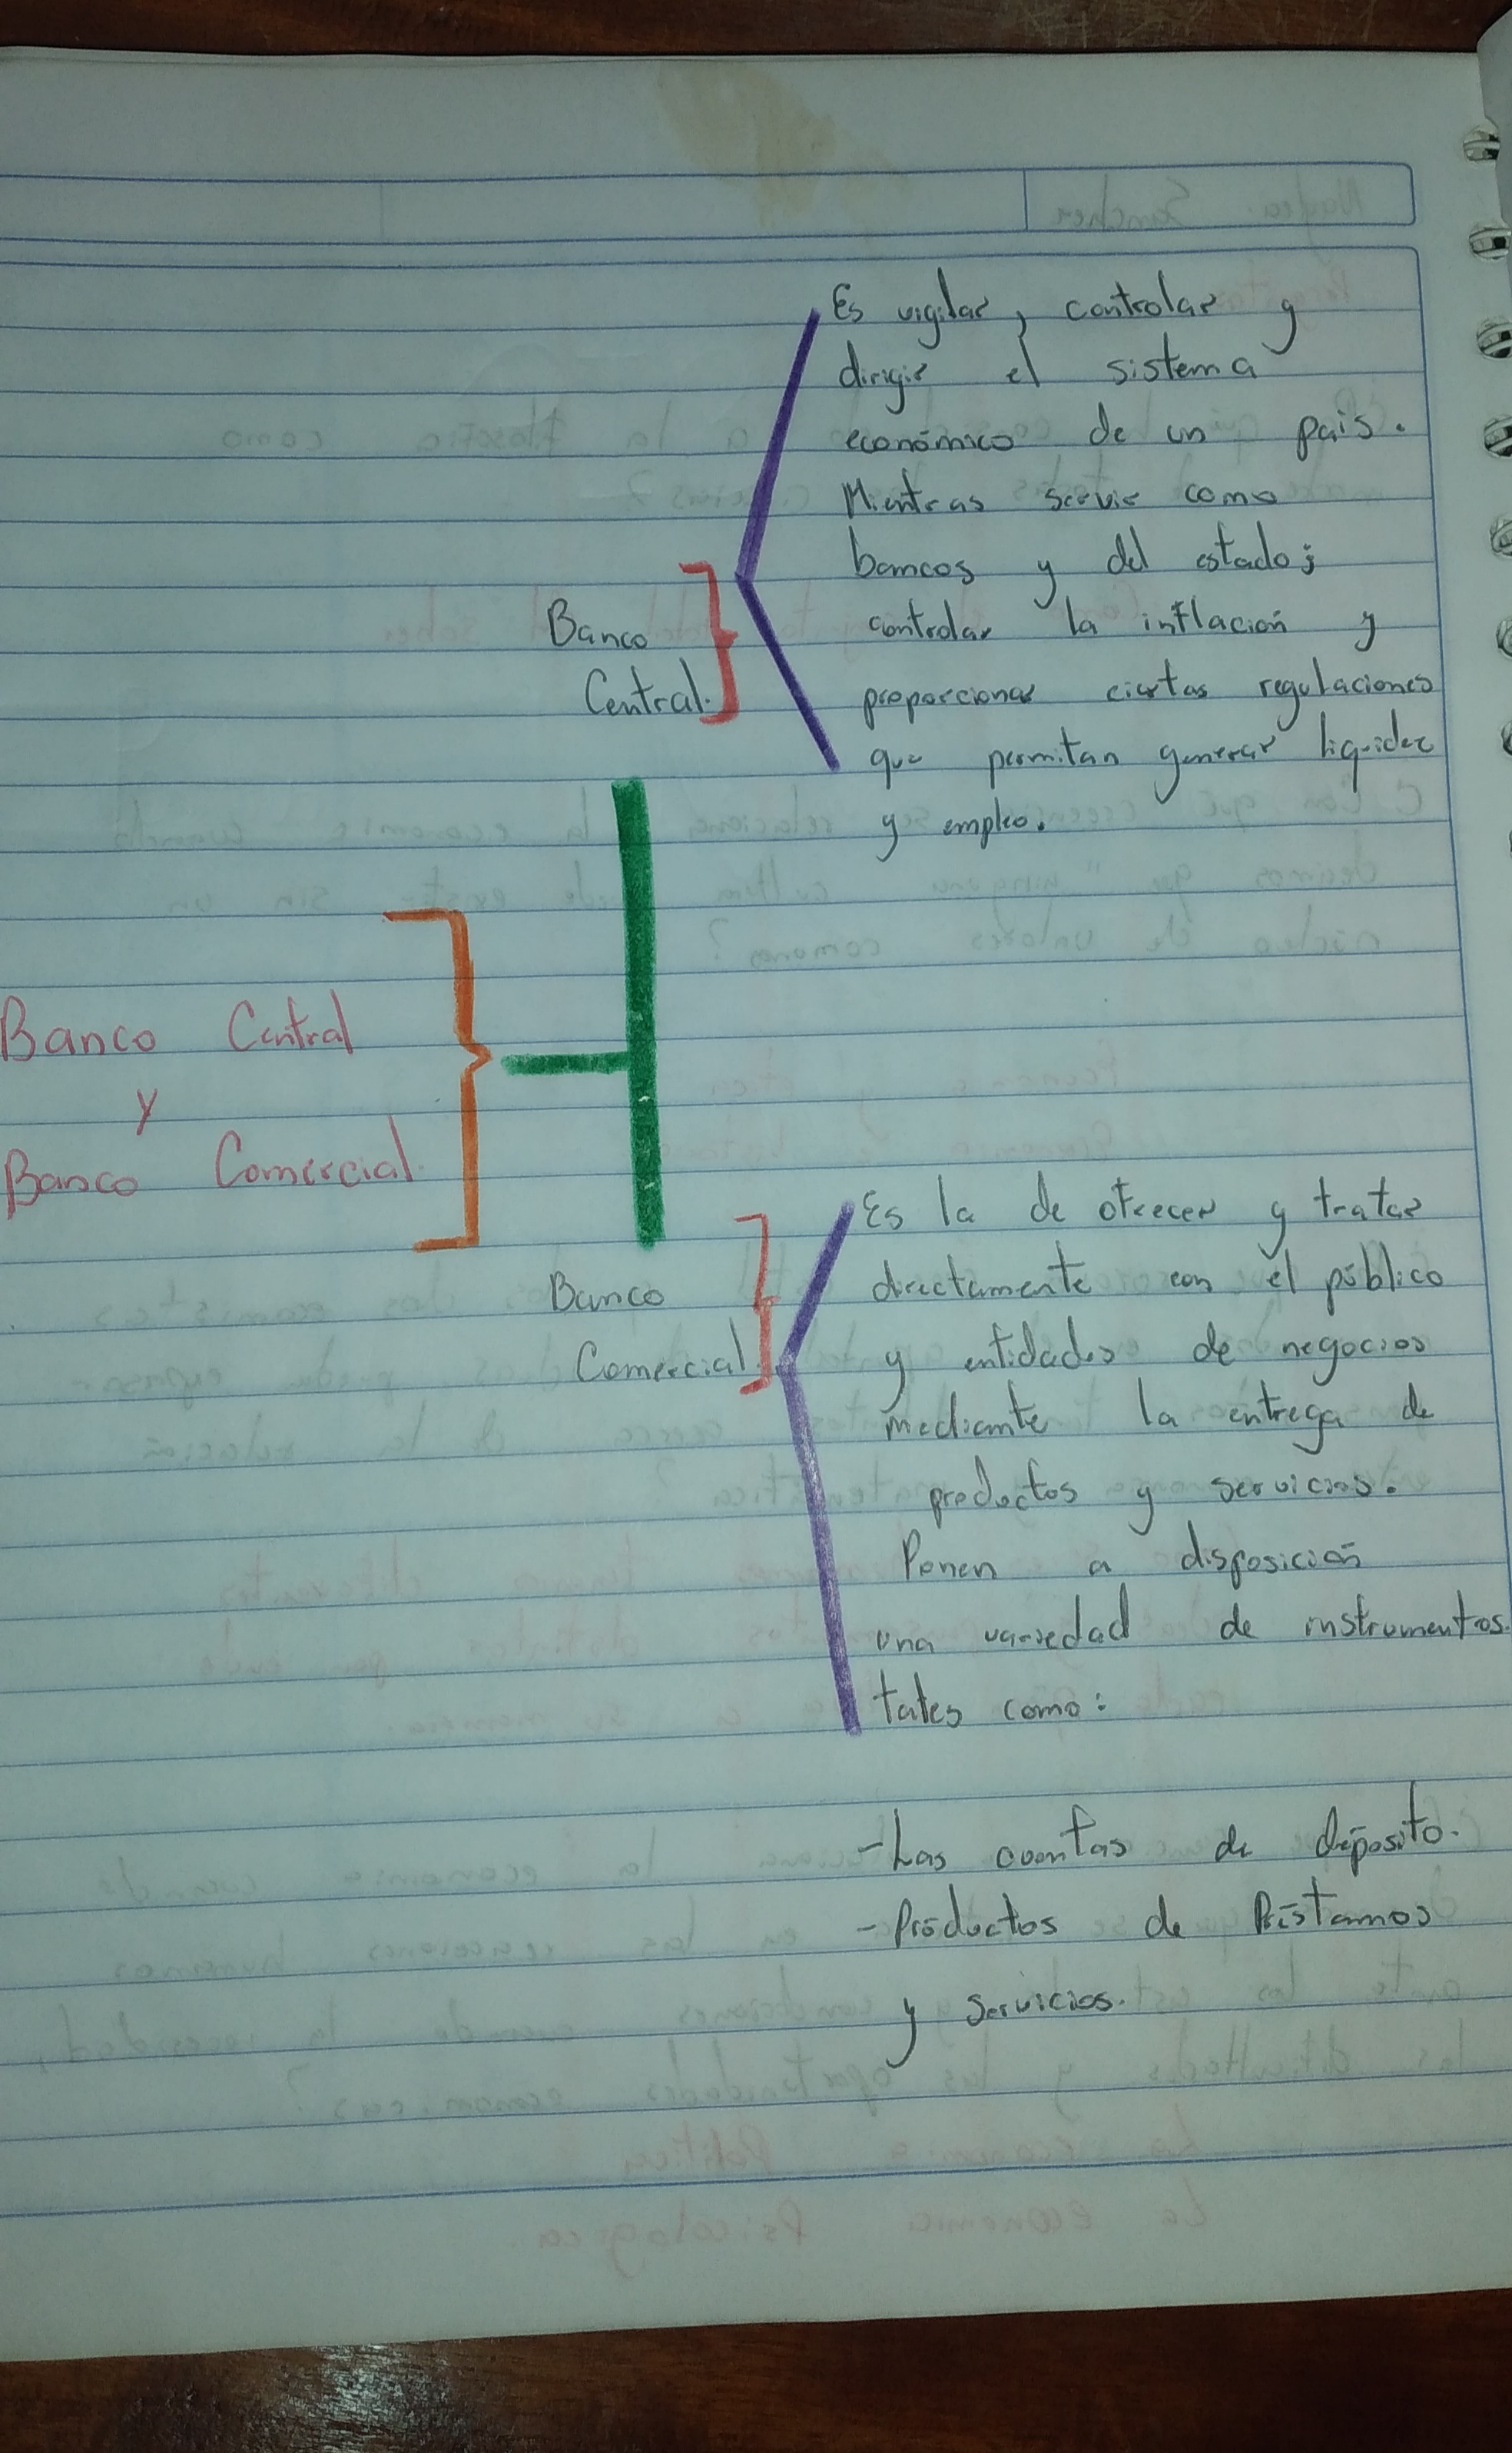 Es vigilar, controlar y
dirigir el sistema
económico de un país.
Mientras servir como
bancos y del estado;
controlar la inflación y
proporcionar ciertas regulaciones
que permitan generar liquidez
y empleo.
Banco
Central.
Banco Central
y
Banco Comercial.
Banco
Comercial.
Es la de ofrecer y tratar
directamente con el público
y entidades de negocios
mediante la entrega de
productos y servicios.
Ponen a disposición
una variedad de instrumentos.
tales como:
-Las cuentas de déposito.
-Productos de Préstamos
y servicios.